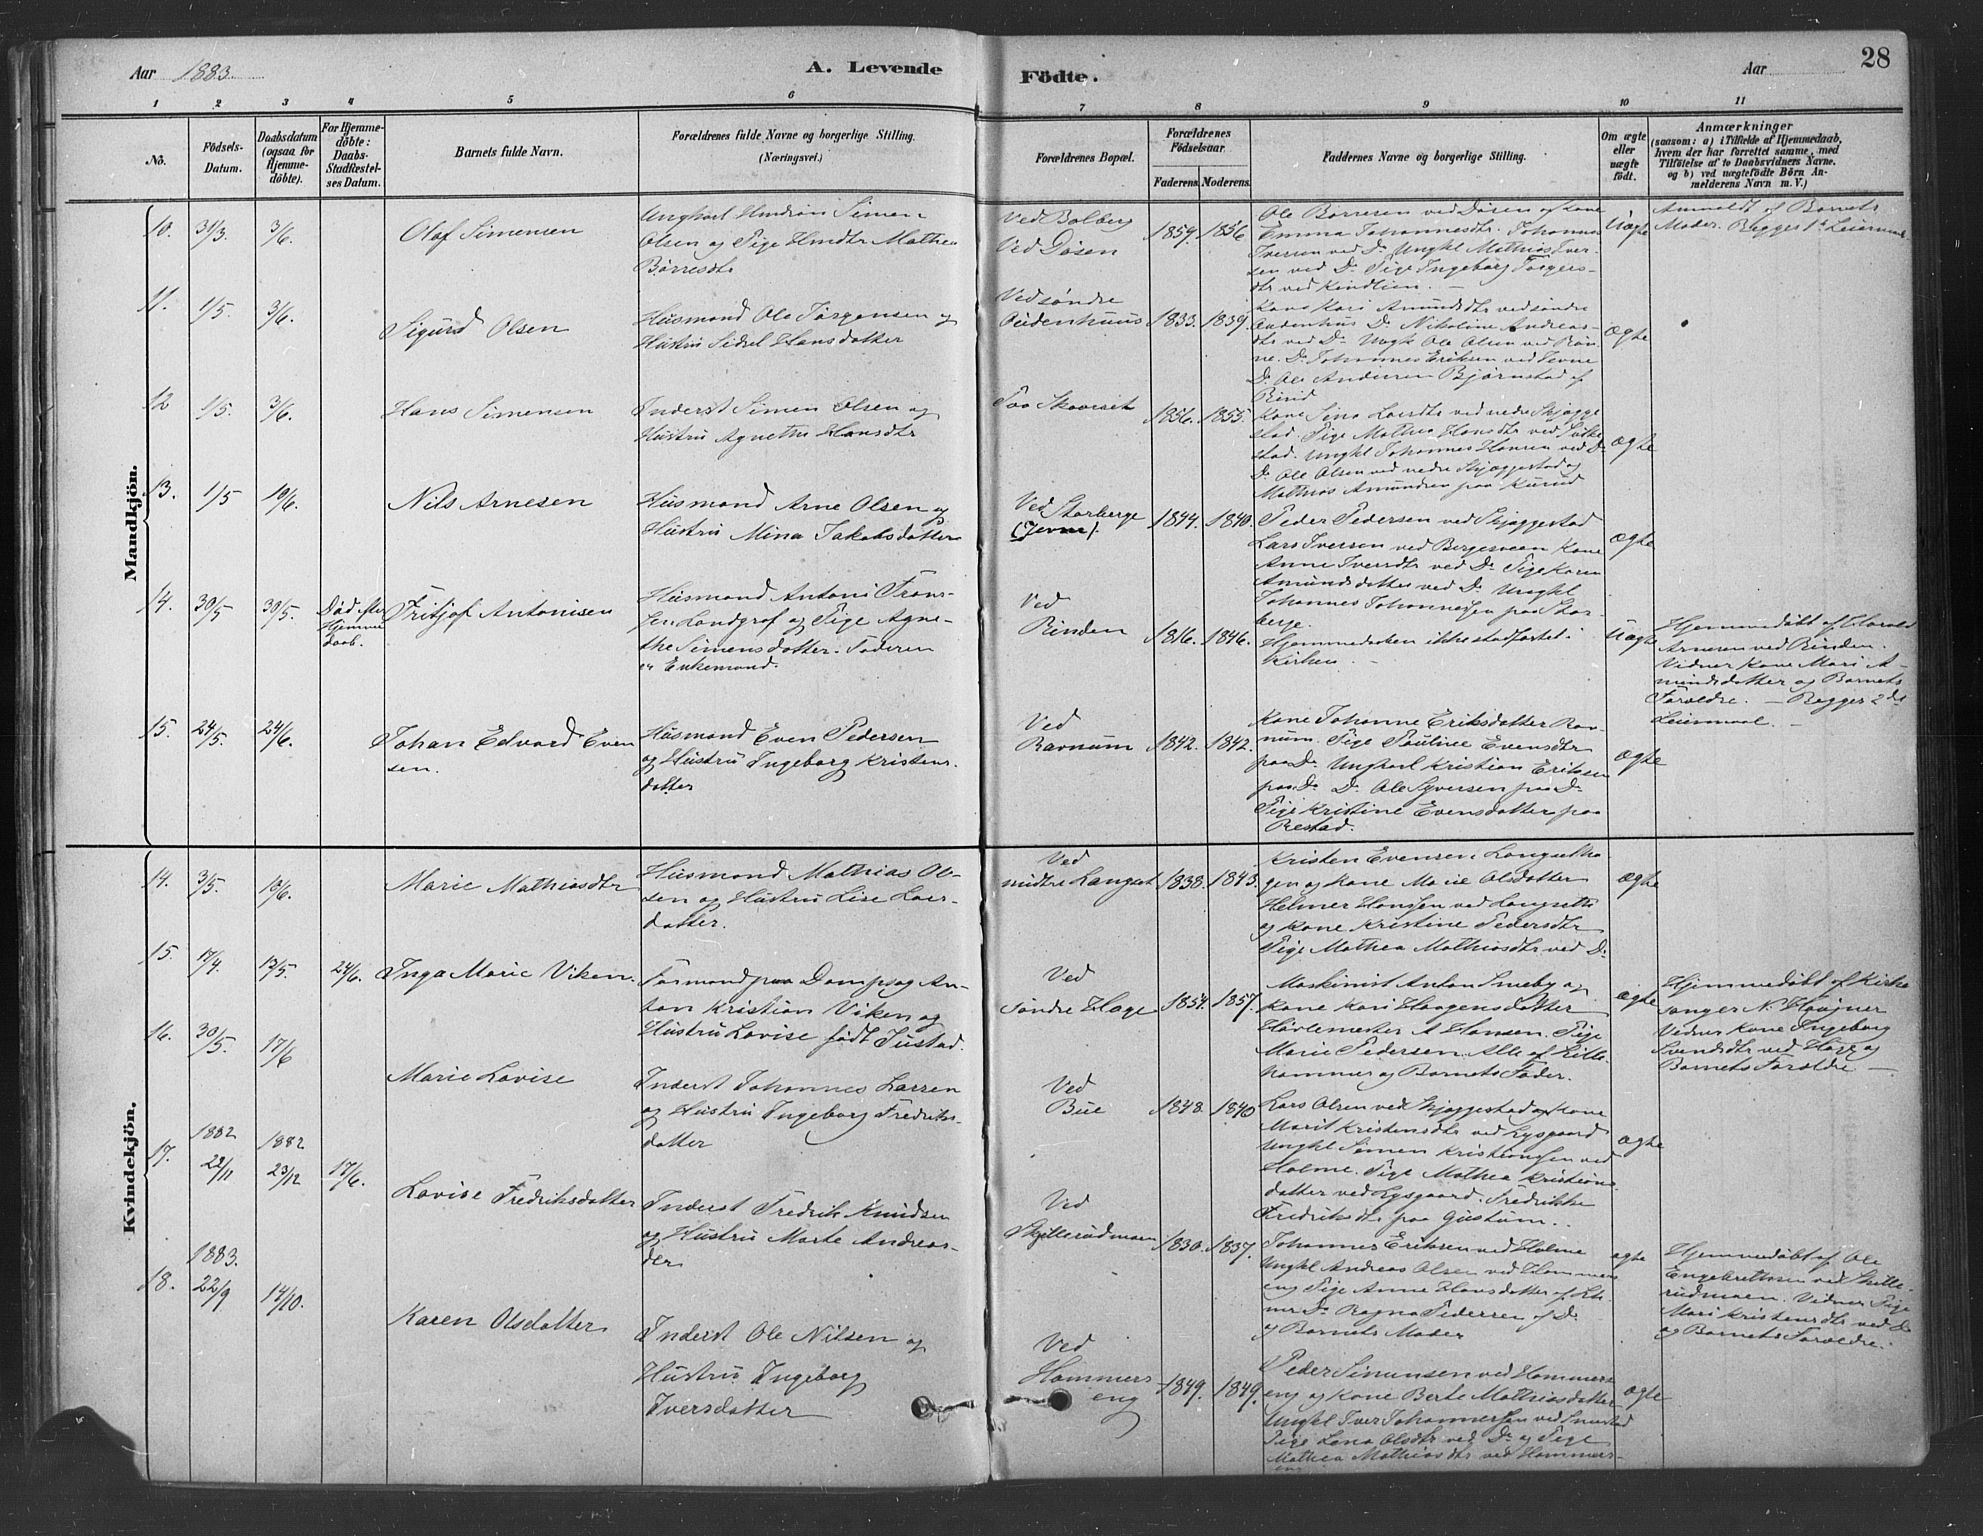 Aar 1883. A. Levende Födte. Aar 28
1 2 3 4 5 6 7 8 9 10 11
No.
Födsels-
Datum.
Daabsdatum
(ogsaa for
Hjemme-
döbte).
For Hjemme-
döbte:
Daabs-
Stadfæstel-
ses Datum.
Barnets fulde Navn.
Forældrenes fulde Navne og borgerlige Stilling.
(Næringsvei.)
Forældrenes Bopæl.
Forældrenes
Födselsaar.
Faderens. Moderens.
Faddernes Navne og borgerlige Stilling.
Om ægte
eller
uægte
födt.
Anmærkninger
(saasom: a) i Tilfælde af Hjemmedaab,
hvem der har forrettet samme, med
Tilföielse af to Daabsvidners Navne,
og b) ved uægtefödte Börn An-
melderens Navn m. V.)
Mandkjön.
10. 31/3. 3/6. Olaf Simensen
Ungkarl Simen
Olsen og Pige Mathea
Börresdtr
Ved Bolberg
Ved Døsen
1859. 1856
Ole Børresen ved Døsen og Kone
Emma Johannesdtr. Johannes
Iversen ved Do Ungkl Mathias Iver-
sen ved Do Pige Ingeborg Torgers-
dtr ved Kindlien. —
Uægte
Anmeldt af Barnets
Moder. Begges 1ste Leiermaal.
11. 1/5. 3/6. Sigurd Olsen
Husmand Ole Jörgensen og
Hustru Sidsel Hansdatter
Ved søndre
Audenhuus
1833. 1839.
Kone Kari Amundsdtr ved søndre
Audenhus Do Nikoline Andreas-
dtr ved Do Ungk Ole Olsen ved
Do Johannes Eriksen ved Jevne
Do Ole Andersen Bjørnstad af
Rind
ægte
12 1/5. 3/6. Hans Simensen
Inderst Simen Olsen og
Hustru Agnethe Hansdtr
Paa
1856. 1855.
Kone Sina Larsdtr ved nedre Skjægge
stad. Pige Mathea Hansdtr ved
stad. Ungkl Johannes Hansen ved Do
Do Ole Olsen ved nedre Skjæggestad og
Mathias Amundsen paa Kurud
ægte
13. 1/5 10/6. Nils Arnesen
Husmand Arne Olsen og
Hustru Mina Jakobsdatter
Ved Storberge
(Jevne).
1844. 1840.
Peder Pedersen ved Skjæggestad
Lars Iversen ved Bergesveen Kone
Anne Iversdtr ved Do Pige Karen
Amundsdatter ved Do Ungkl
Johannes Johannessen paa Stor-
berge.
ægte
14. 30/5 30/5.
Död efter
Hjemme
daab.
Fritjof Antonisen
Husmand Antoni Frans-
sen Landgraf og Pige Agne-
the Simensdatter. Faderen
er Enkemand.
Ved
Rinden
1816. 1846.
Hjemmedaaben ikke stadfæstet i
Kirken. —
Uægte
Hjemmedøbt af Harald
Arnesen ved Rinden.
Vidner Kone Mari A-
mundsdatter og Barnets
Forældre. — Begges 2det
Leiermaal. —
15. 24/5. 24/6.
Johan Edvard Even
sen.
Husmand Even Pedersen
og Hustru Ingeborg Kristens-
datter
Ved
Ravnum
1842. 1842.
Kone Johanne Eriksdatter Rav-
num. Pige Pauline Evensdtr
paa Do Ungkarl Kristian Eriksen
paa Do Do Ole Syversen paa Do
Pige Kristine Evensdatter paa
Restad.
ægte
Kvindekjön.
14. 3/5. 10/6. Marie Mathiasdtr
Husmand Mathias Ol-
sen og Hustru Lise Lars-
datter.
Ved
midtre Langset
1838. 1843.
Kristen Evensen Langsetha-
gen og Kone Marie Olsdatter
Helmer Hanssen ved Langseth
og Kone Kristine Pedersdtr
Pige Mathea Mathiasdtr ved Do
ægte
15. 17/4. 13/5. 24/6. Inga Marie Viken.
Formand paa Dampsag An-
ton Kristian Viken og
Hustru Lovise født Justad.
Ved
søndre Hage
1854. 1857.
Maskinist Anton Smeby og
Kone Kari Haagensdatter
Høvlemester A Hansen. Pige
Marie Pedersen. Alle af Lille-
hammer og Barnets Fader.
ægte
Hjemmedøbt af Kirke
sanger N. Høvjner
Vidner Kone Ingeborg
Svendsdtr ved Hage og
Barnets Forældre —
16. 20/5. 17/6 Marie Lovise
Inderst Johannes Larsen
og Hustru Ingeborg Fredriks-
datter
Ved
Bue
1848. 1840
Lars Olsen ved Skjæggestad og Kone
Marit Kristensdtr ved Lysgaard
Ungkl Simen Kristiansen ved
Holme. Pige Mathea Kristians-
datter ved Lysgaard. Fredrikke
Fredriksdtr paa Gustum.
ægte
17. 1882 22/11 1882 23/12 17/6. Lovise Fredriksdatter
Inderst Fredrik Knudsen
og Hustru Marte Andreas-
dtr
Ved
Skjellerudmoen
1830. 1837.
Johannes Eriksen ved Holme
Ungkl Andreas Olsen ved Hammers
eng Pige Anne Hansdatter af
Do Ragna Pedersen af Do
og Barnets Moder
ægte
Hjemmedøbt af Ole
Engebrethsen ved Skelle-
rudmoen. Vidner Pige
Mari Kristensdtr ved Do
og Barnets Forældre.
18. 1883. 22/9 14/10. Karen Olsdatter
Inderst Ole Nilsen og
Hustru Ingeborg
Iversdatter
Ved
Hammers
eng
1849. 1849.
Peder Simensen ved Hammers
eng og Kone Berte Mathiasdatter
Ungkl Iver Johannessen ved Smestad
Pige Lena Olsdtr ved Do og Pige
Mathea Mathiasdtr ved Hammers-
eng
ægte